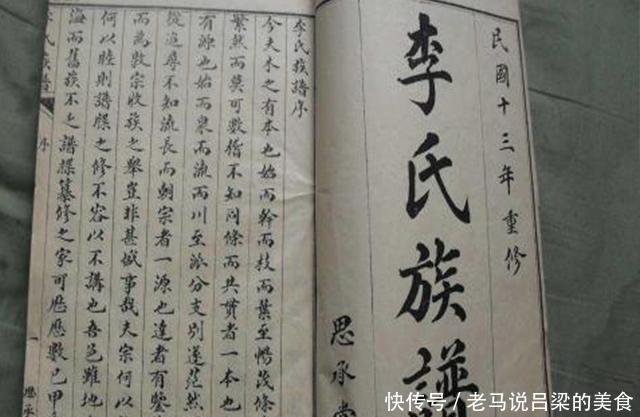 民國十三年重修
李氏族譜
思承堂
李氏族譜序
今夫木之有本也始而幹而枝而葉至暢茂條
繁然而莫可數稽不知同條而共貫者一本也
有源也始而泉而流而川至派分支別遂茫然
從追尋不知流長而朝宗者一源也達者有鑒
而為敬宗收族之舉豈非甚盛事哉夫宗何以
何以睦則譜牒之修不容以不講也吾邑雖地
海而舊族不乏譜牒纂修之家可歷歷數已甲
氏族譜 序 一 思承
快传号／老马说吕梁的美食